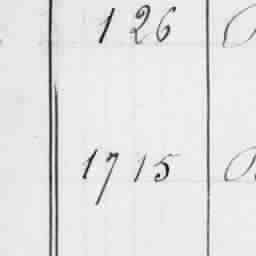 1 26
17 15